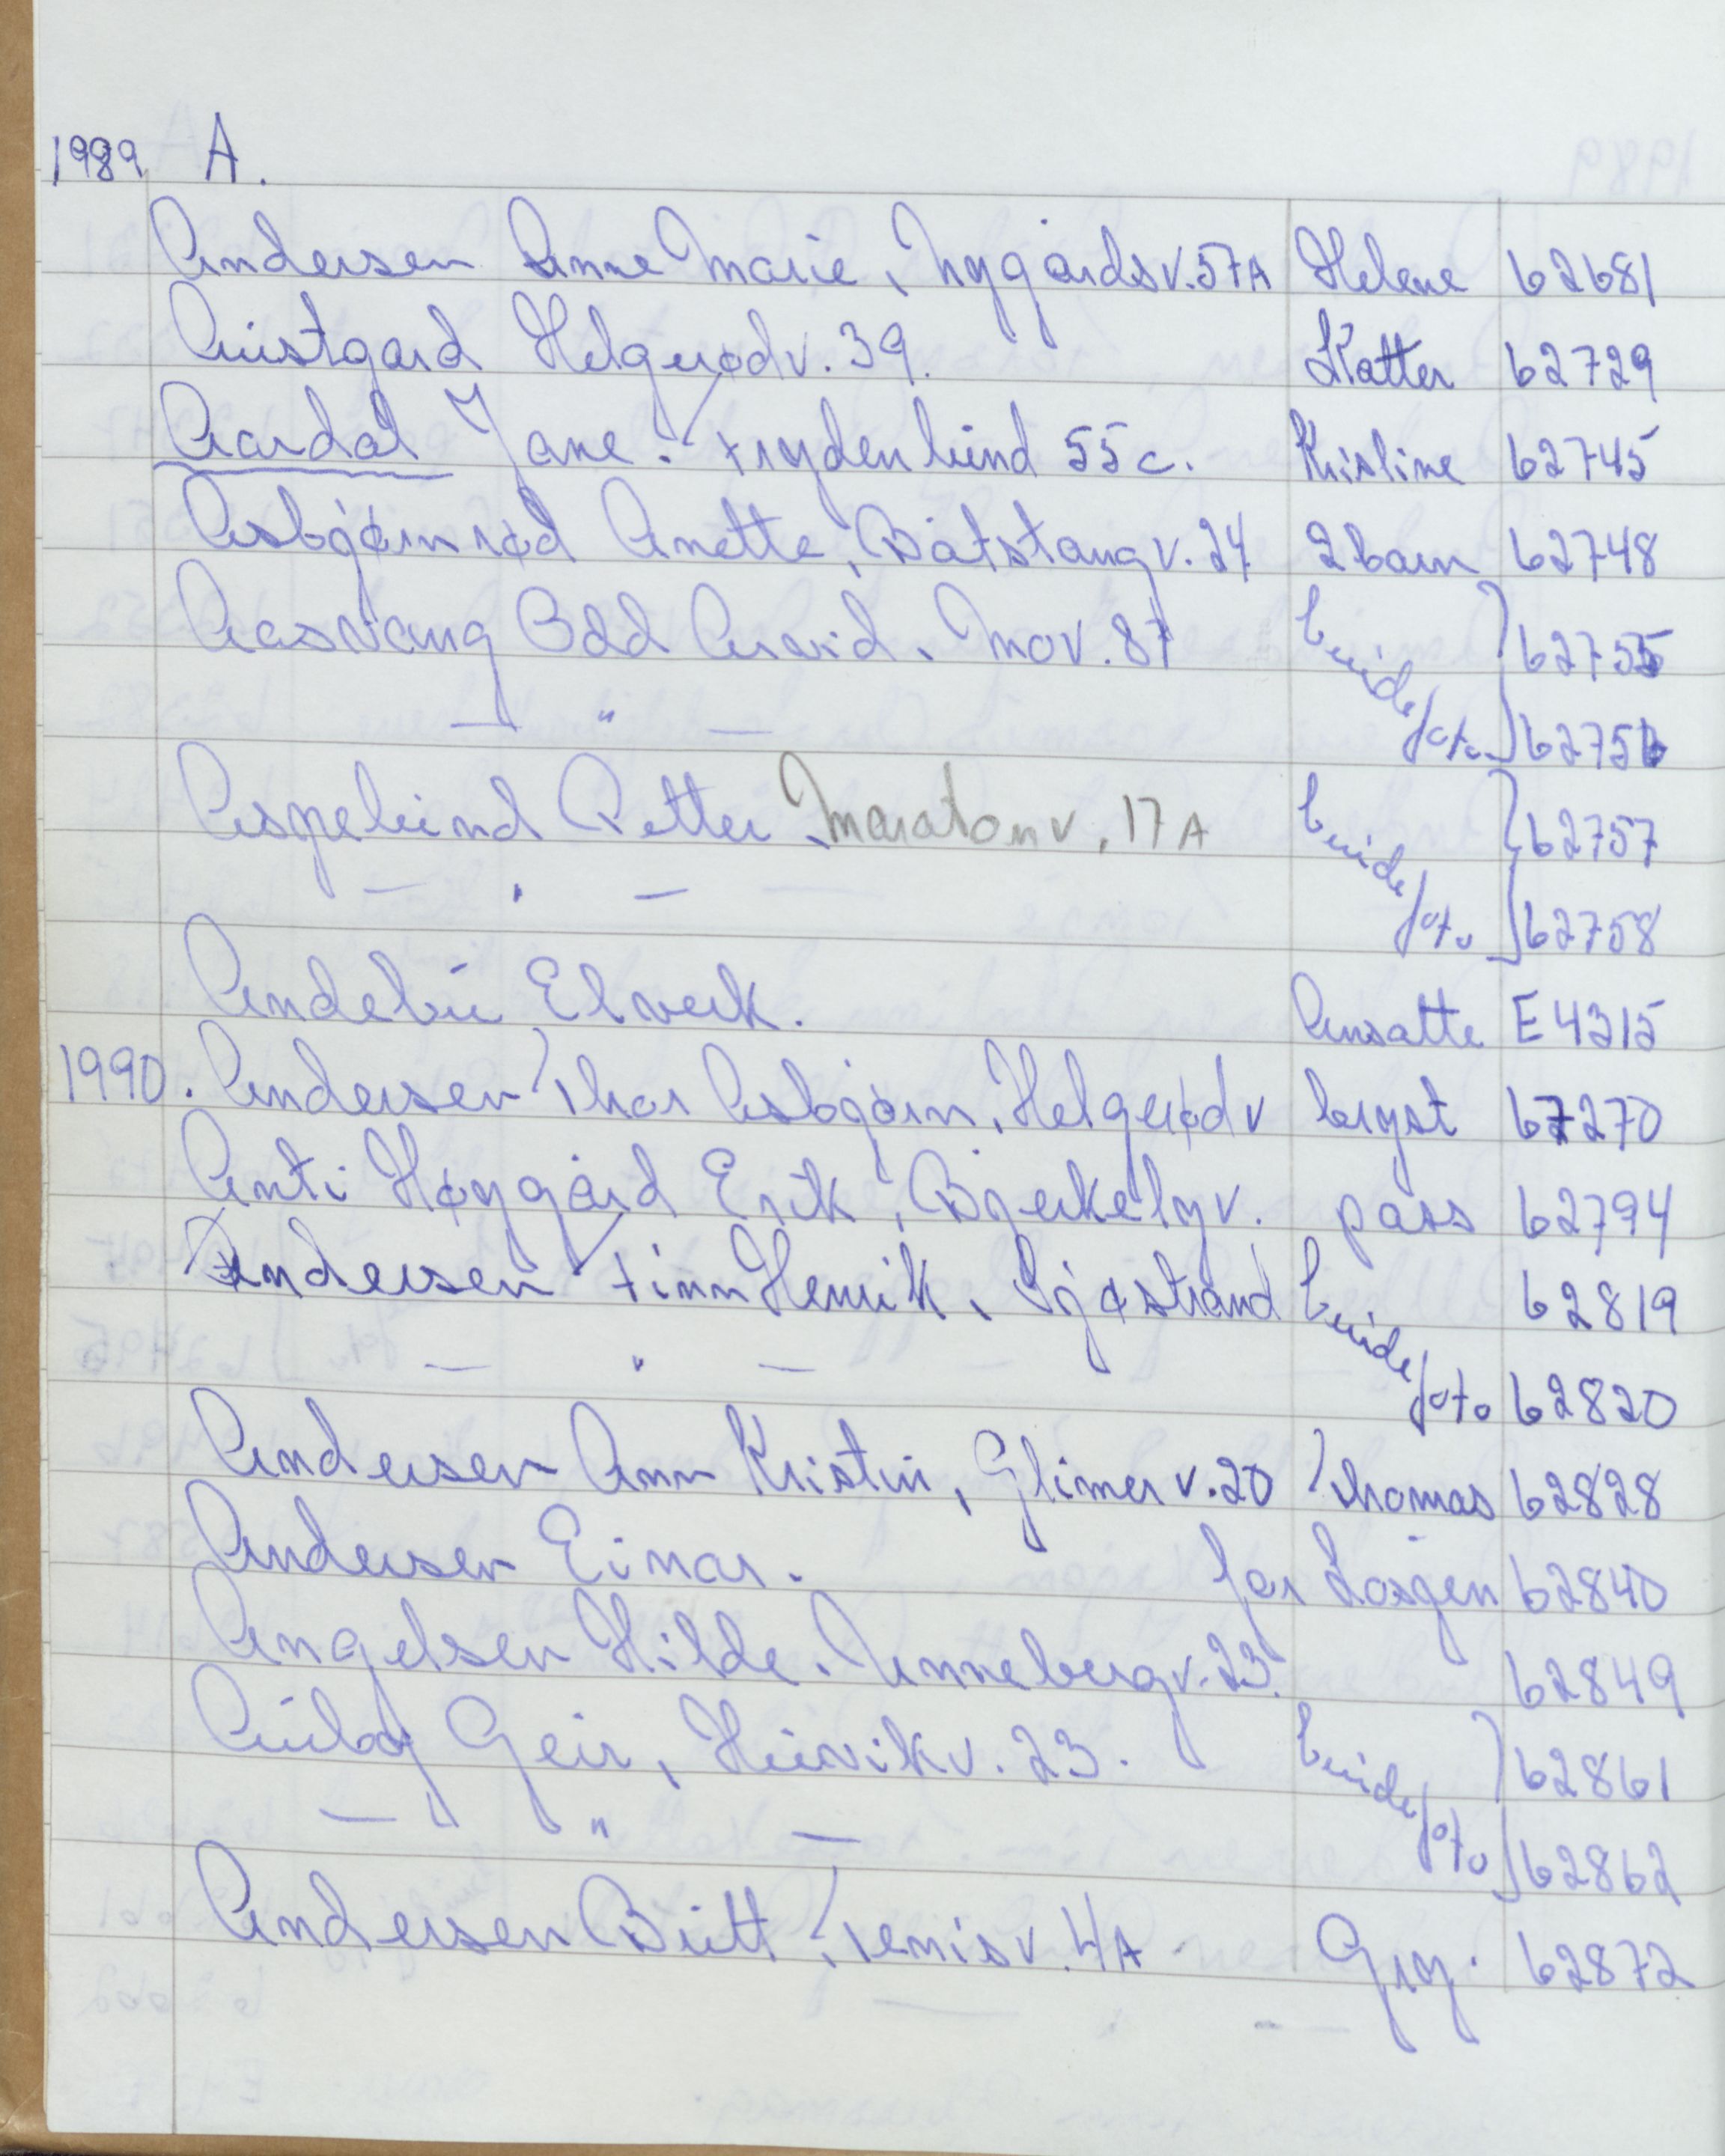 1989 A.
Andersen Anne Marie, Nygårdsv. 57A Helene 62681
Austgard Helgerødv. 39. Katter 62729
Aardal Jane. Frydenlund 55c. Kristine 62745
Asbjørnrød Anette, Båtstangv. 24 2 barn 62748
Aasvang Odd Arvid. Mov. 87 brude 62755
— " — foto 62756
Aspelund Petter. Maratonv. 17A brude 62757
— " — foto 62758
Andebu Elverk. Ansatte E4315
1990. Andersen Thor Asbjørn, Helgerødv bryst 67270
Anti Høygård Erik, Bjerkelyv. pass 62794
Andersen Finn Henrik, Sjøstrand brude 62819
— " — foto 62820
Andersen Ann Kristin, Glimerv. 20 Thomas 62828
Andersen Einar. for Losjen 62840
Angelsen Hilde. Annebergv. 23. 62849
Auby Geir, Huvikv. 23. brude 62861
— " — foto 62862
Andersen Britt, Tenisv. 4A Gry. 62872